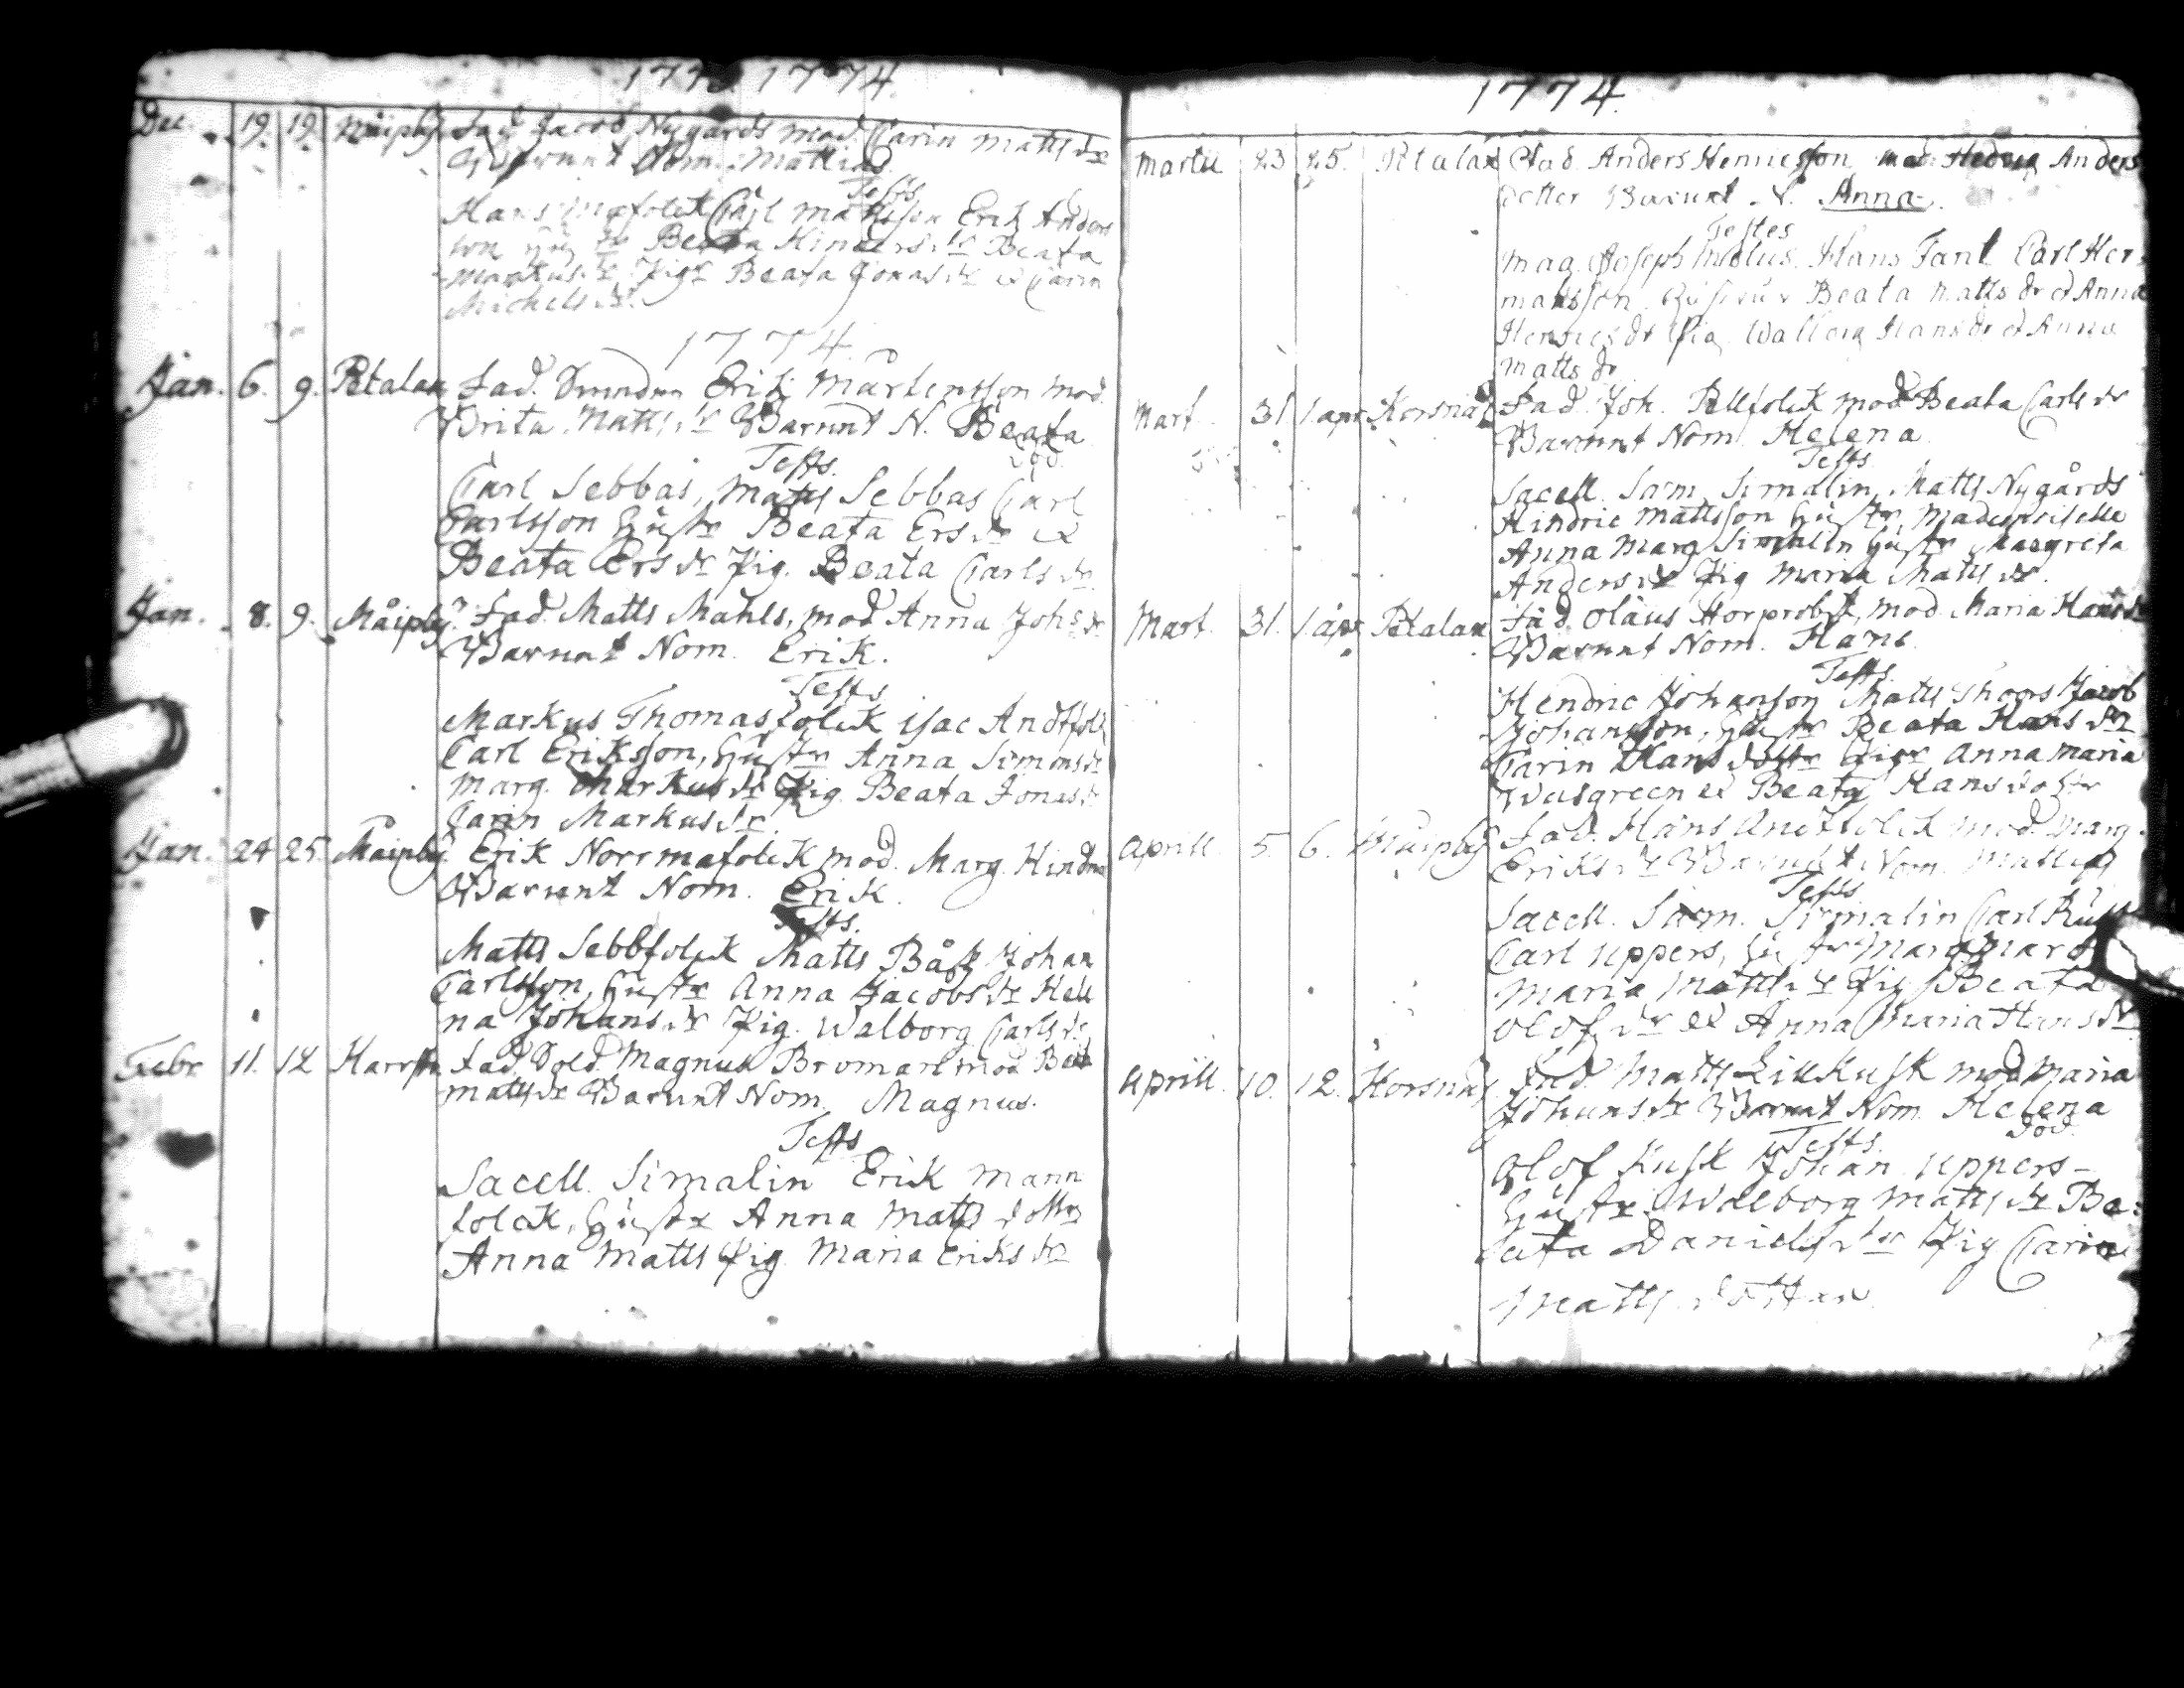 1773. 1774
Dec. 19. 19. Måipby. Fad. Jacob Nygårds mod. Carin Matts dr
Barnet Nom. Mattias
Tests
Hans folck Carl Mattsson Erik Anders
son Hust Beata Hinders dr Beata
Markus dr Pigr Beata Jonas dr et Carin
Michels dr.
1774.
Jan. 6. 9. Petalax Fad. Erik Mårtensson mod.
Brita Matts dr Barnet N. Beata
död
Tests.
Carl Sebbas, Matts Sebbas Carl
Carlsson Hustr Beata Ers dr et
Beata Ers dr Pig. Beata Carls dr
Jan. 8. 9. Måipby. Fad. Matts Mahls, mod Anna Johs dr
Barnet Nom. Erik.
Tests
Markus Thomasfolck Isac Andtfolk
Carl Eriksson, Hustr Anna Simons dr
Marg. Markus dr Pig. Beata Jonas dr
Carin Markus dr.
Jan. 24 25. Måipby. Erik Norrmafolck mod. Marg. Hindrs
Barnet Nom. Erik.
Tests.
Matts Sebbfolck Matts Båsk Johan
Carlsson, Hustr Anna Jacobs dr Hele
na Johans dr Pig. Walborg Carls dr
Febr 11. 12 Harrstr. Fad. Sold. Magnus Bromari mod Beat
matts dr Barnet Nom. Magnus.
Tests
Sacell. Simalin Erik Mann
folck, Hustr Anna Matts dottr
Anna Matts Pig. Maria Eriks dr
1774.
Martii 23 25. Petalax Fad. Anders Henricsson, mod. Hedvig Anders
dotter Barnet N. Anna
Testes
Mag. Joseph Hans Fant Carl Her-
mansson Hustrur Beata Matts dr et Anna
Henrics dr Pig. Walborg Hans dr et Anna
Matts dr
Mart. 31 1 apr. Korsnäs Fad. Joh. Pellfolck mod. Beata Carls dr
Barnet Nom. Helena
Tests
Sacell. Sam. Simalin, Matts Nygårds
Hindric Mattsson Hustr, Mademoiselle
Anna Marg. Simalin Hustr Margreta
Anders dr Pig Maria Matts dr.
Mart. 31. 1 apr Petalax Fad. Olaus Horprobst, mod. Maria Hans dr
Barnet Nom. Hans
Tests.
Hendric Johanson Matts Thoors Jacob
Johansson, Hustr Beata Hans dr
Carin Hans dottr Pigr Anna Maria
Wasgreen et Beata Hans dottr
Aprill. 5. 6. Måipby Fad. Hans Andtfolck mod. Marg.
Eriks dr Barnet Nom. Mattias
Tests
Sacell. Sam. Simalin Carl
Carl Uppers, Hustr Marg
Maria Matts dr Pig Beata
Olof dr et Anna Maria Hans dr
Aprill. 10. 12. Korsnäs Fad. Matts Lillkusk mod Maria
Johans dr Barnet Nom. Helena
död
Tests.
Olof Kusk Johan Uppers-
Hustr. Walborg Matts dr Be-
ata Daniels dr Pig Carin
Matts dotter